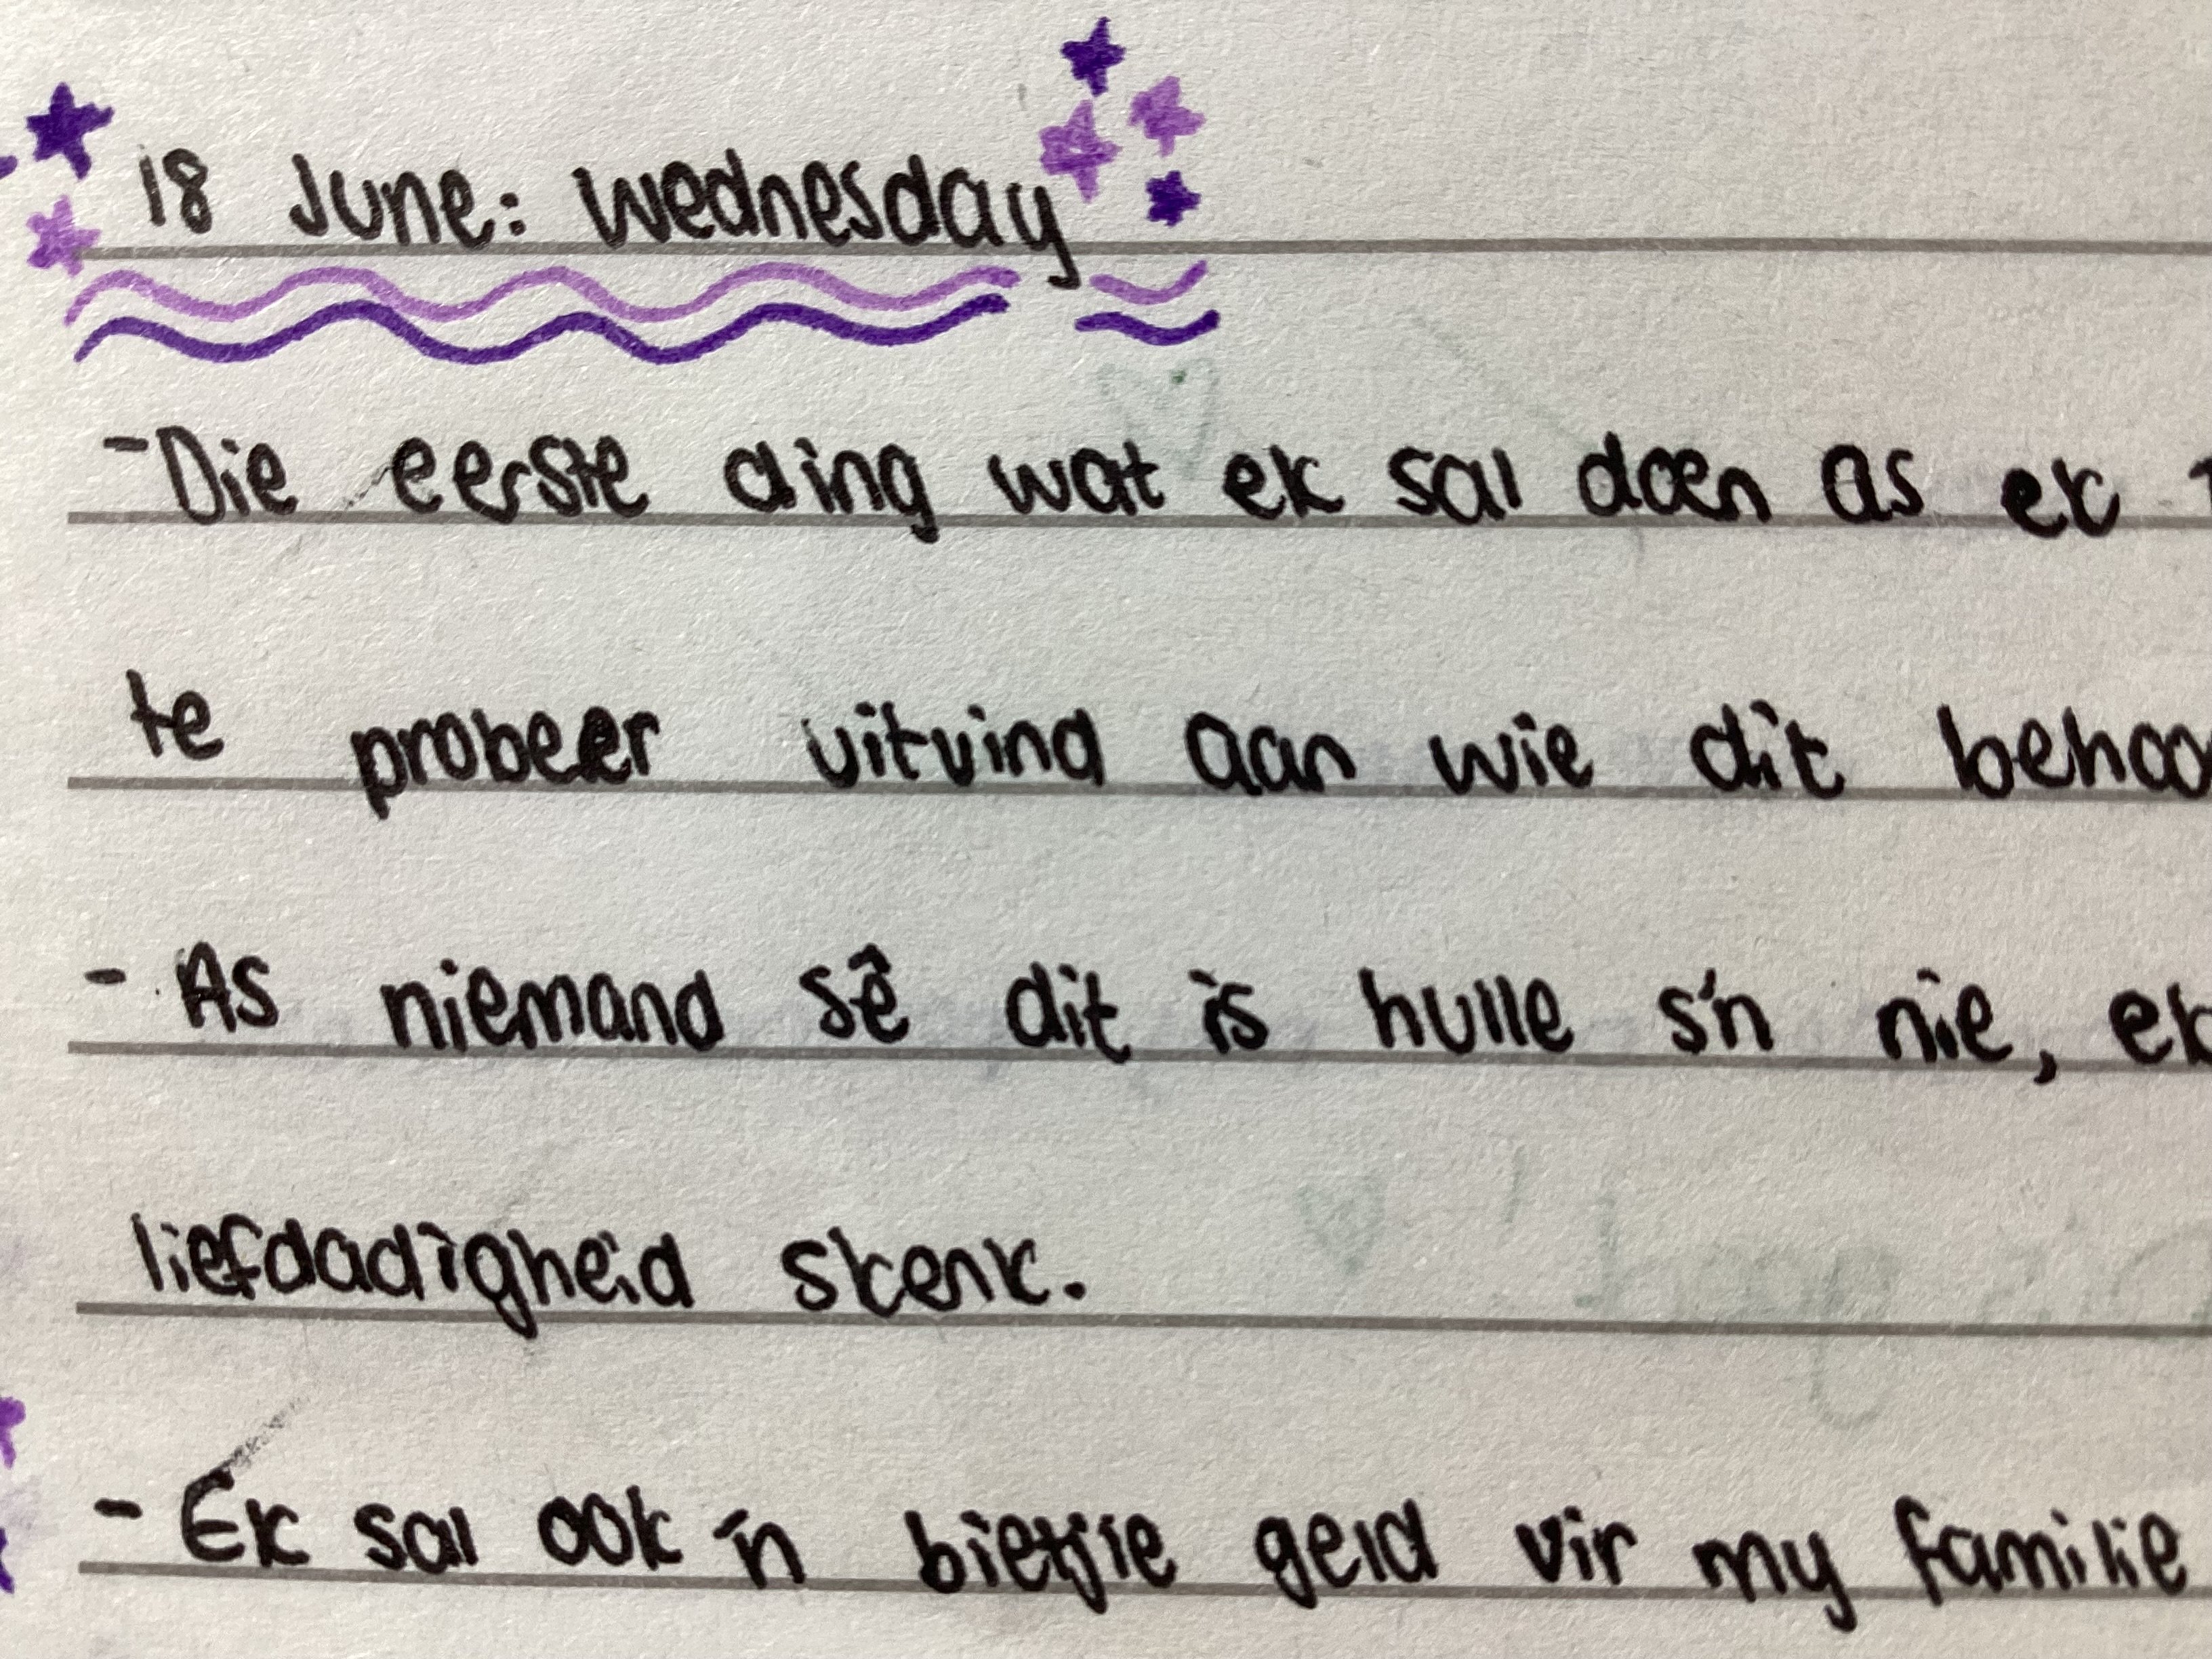 18 June: Wednesday
-Die eerste ding wat ek sal doen as ek
te probeer uitvind aan wie dit behoo
- As niemand sê dit is hulle s'n nie, ek
liefdadigheid skenk.
- Ek sal ook 'n bietjie geld vir my familie